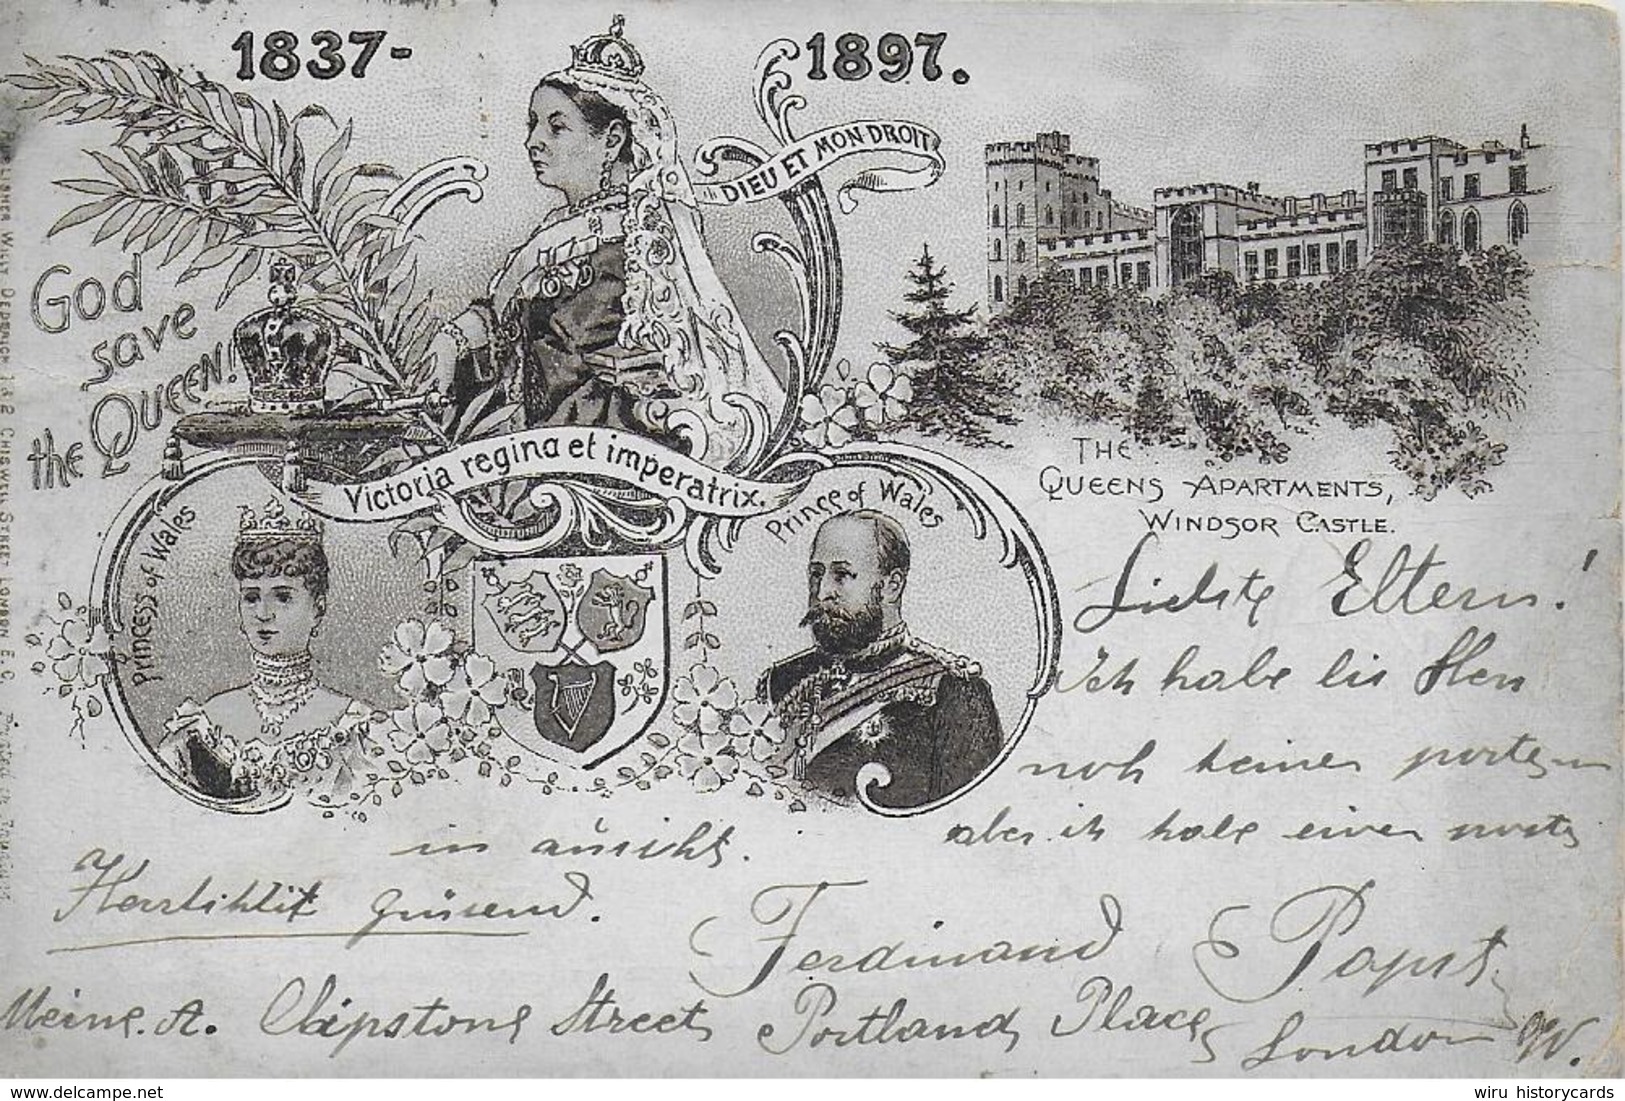 1837-
1897.
DIEU ET MON DROIT
God
save
the QUEEN!
Victoria regina et imperatrix.
Princess of Wales
Prince of Wales
THE
QUEENS APARTMENTS,
WINDSOR CASTLE.
Liebste Eltern!
ich habe bis
noch keinen posten
aber ich habe einen posten
in aussicht.
Herzlichst grüsend.
Ferdinand Papst
Meine. A. Clipstone Street Portland Place London W.
wiru historycards